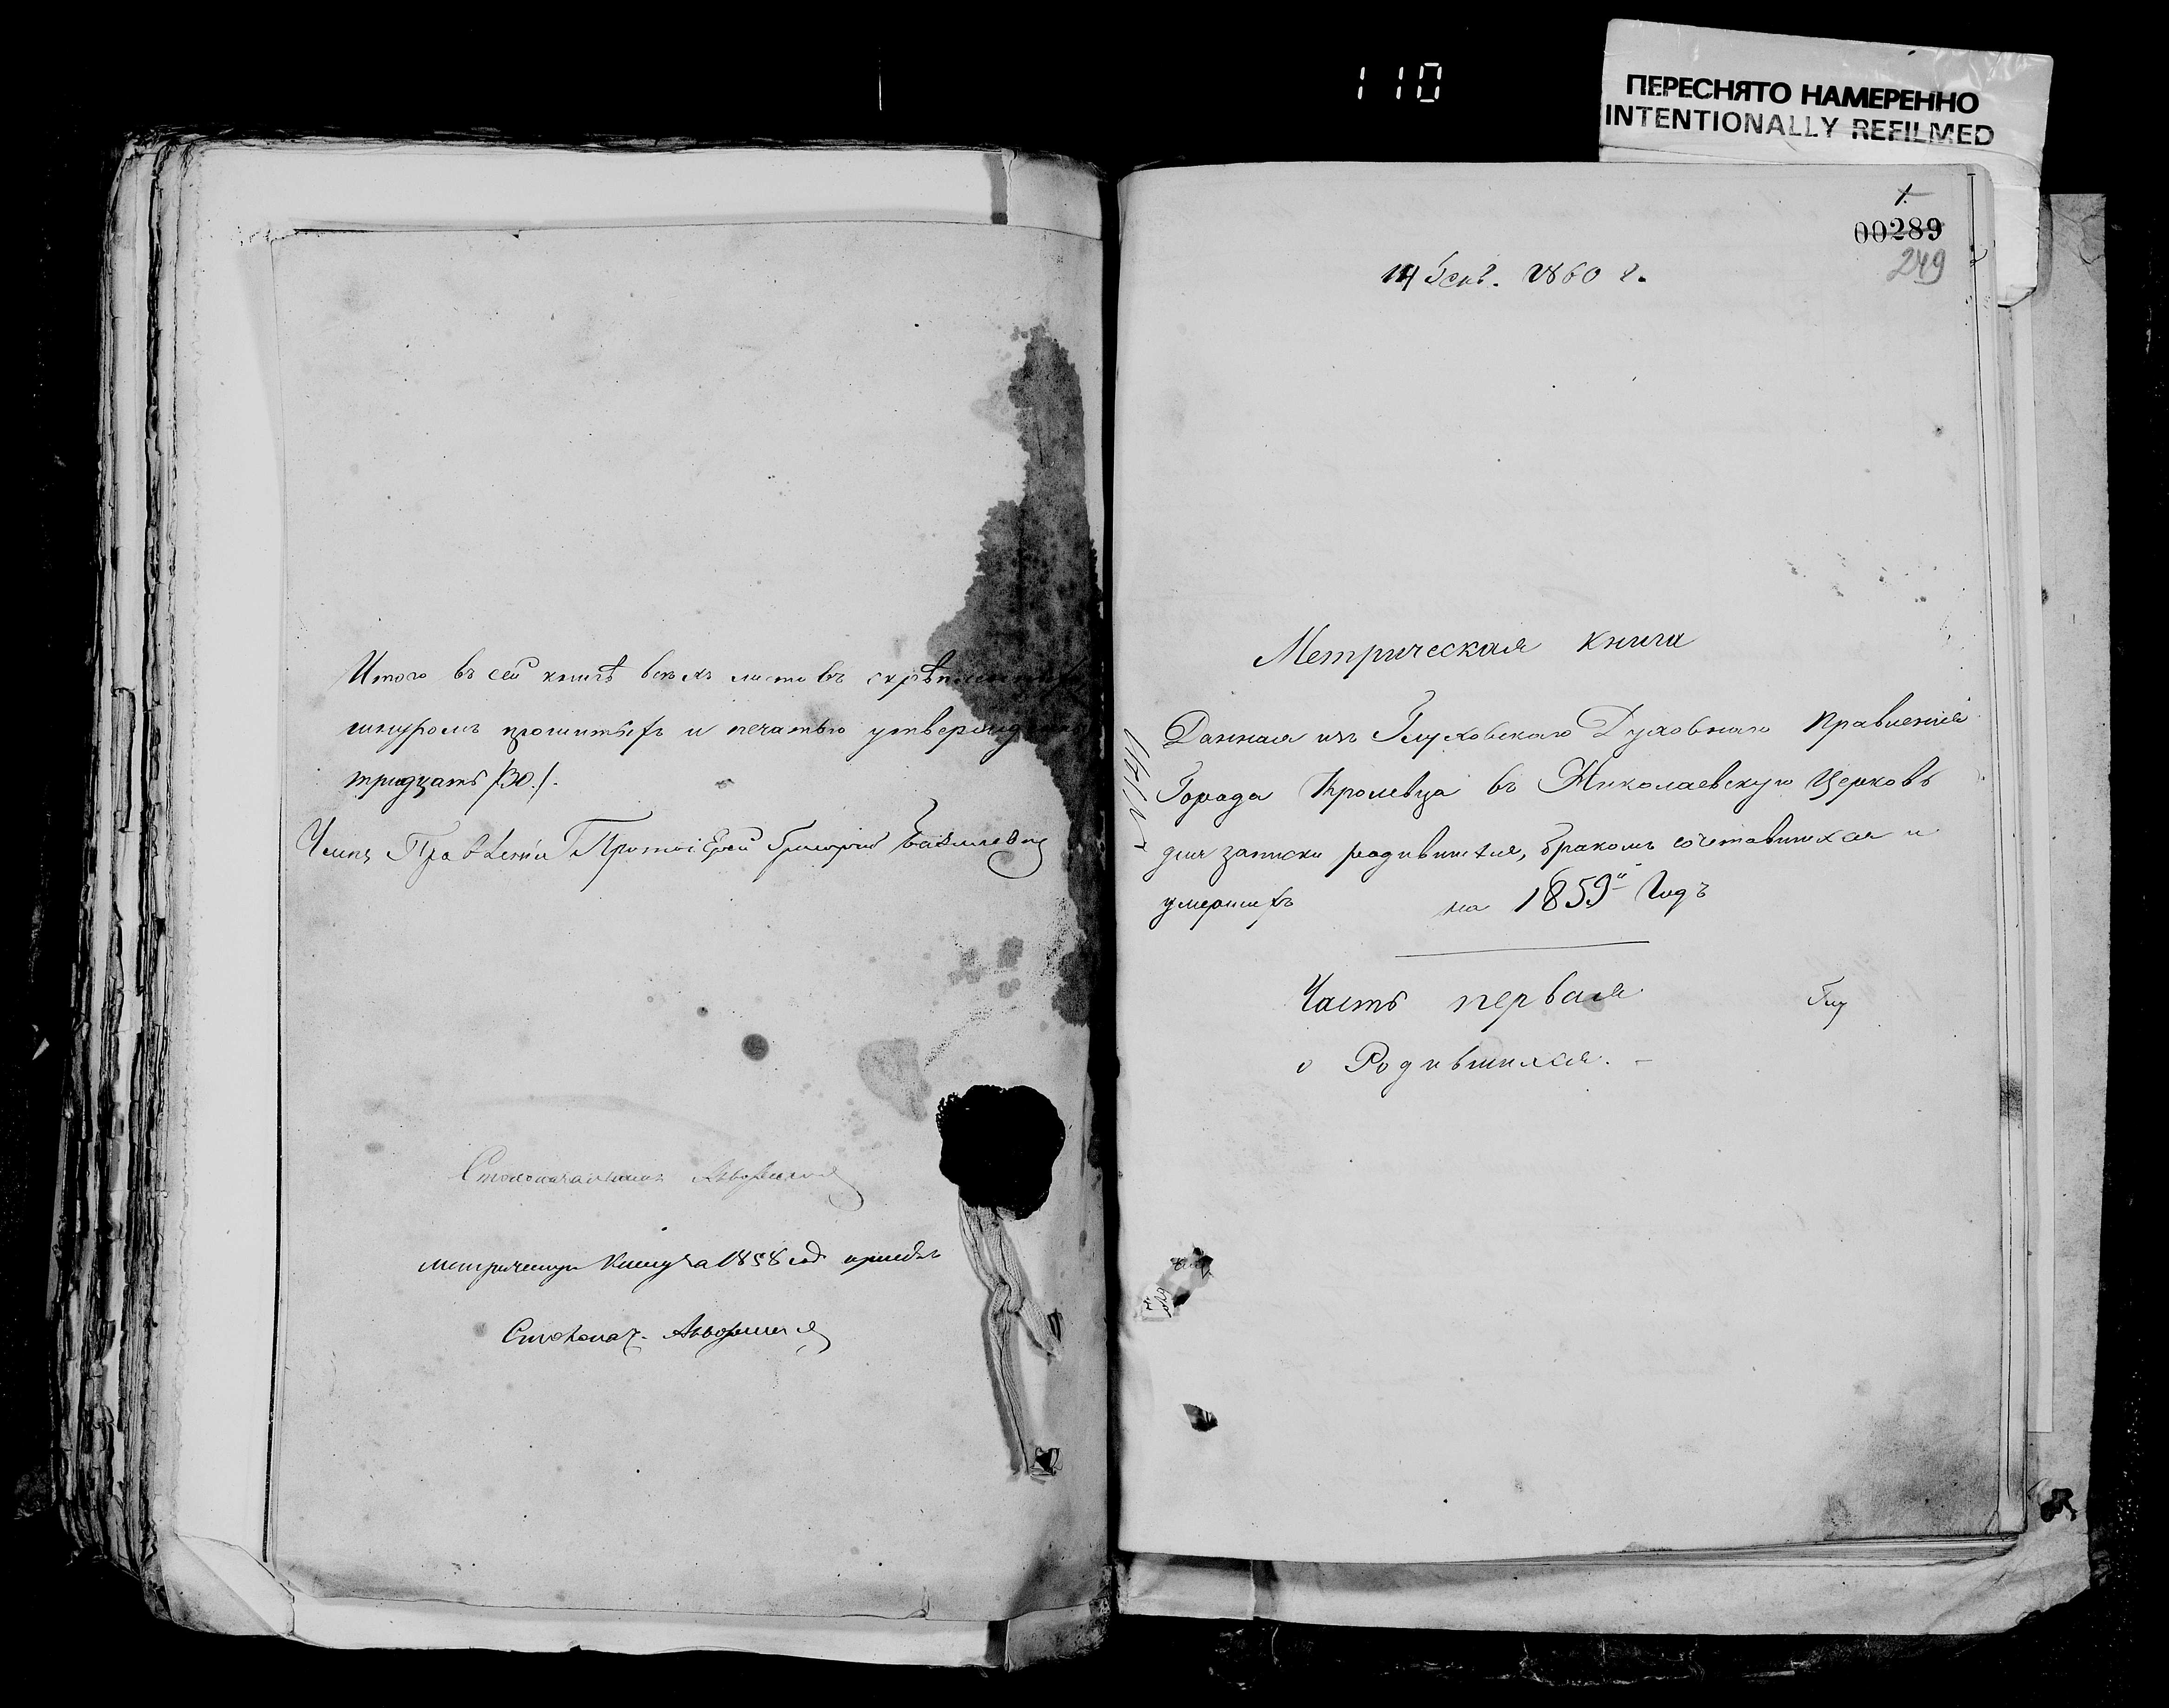 110
ПЕРЕСНЯТО НАМЕРЕННО
INTENTIONALLY REFILMED
Итого въ сей книгѣ всѣхъ листовъ скрѣпленныхъ
шнуромъ прошитыхъ и печатью утвержд
тридцать /30./.
Членъ Правленія Протоіерей Григорій
Столоначальникъ
метрическую книгу за 1858 год
Столонач.
1.
00289
249
14 Генв. 1860 г.
Метрическая книга
Данная изъ Глуховскаго Духовнаго Правленія
Города Кролевца въ Николаевскую Церковь
для записки родившихся, бракомъ сочетавшихся и
умершихъ на 1859й Годъ
Часть первая
Глу
о Родившихся. -